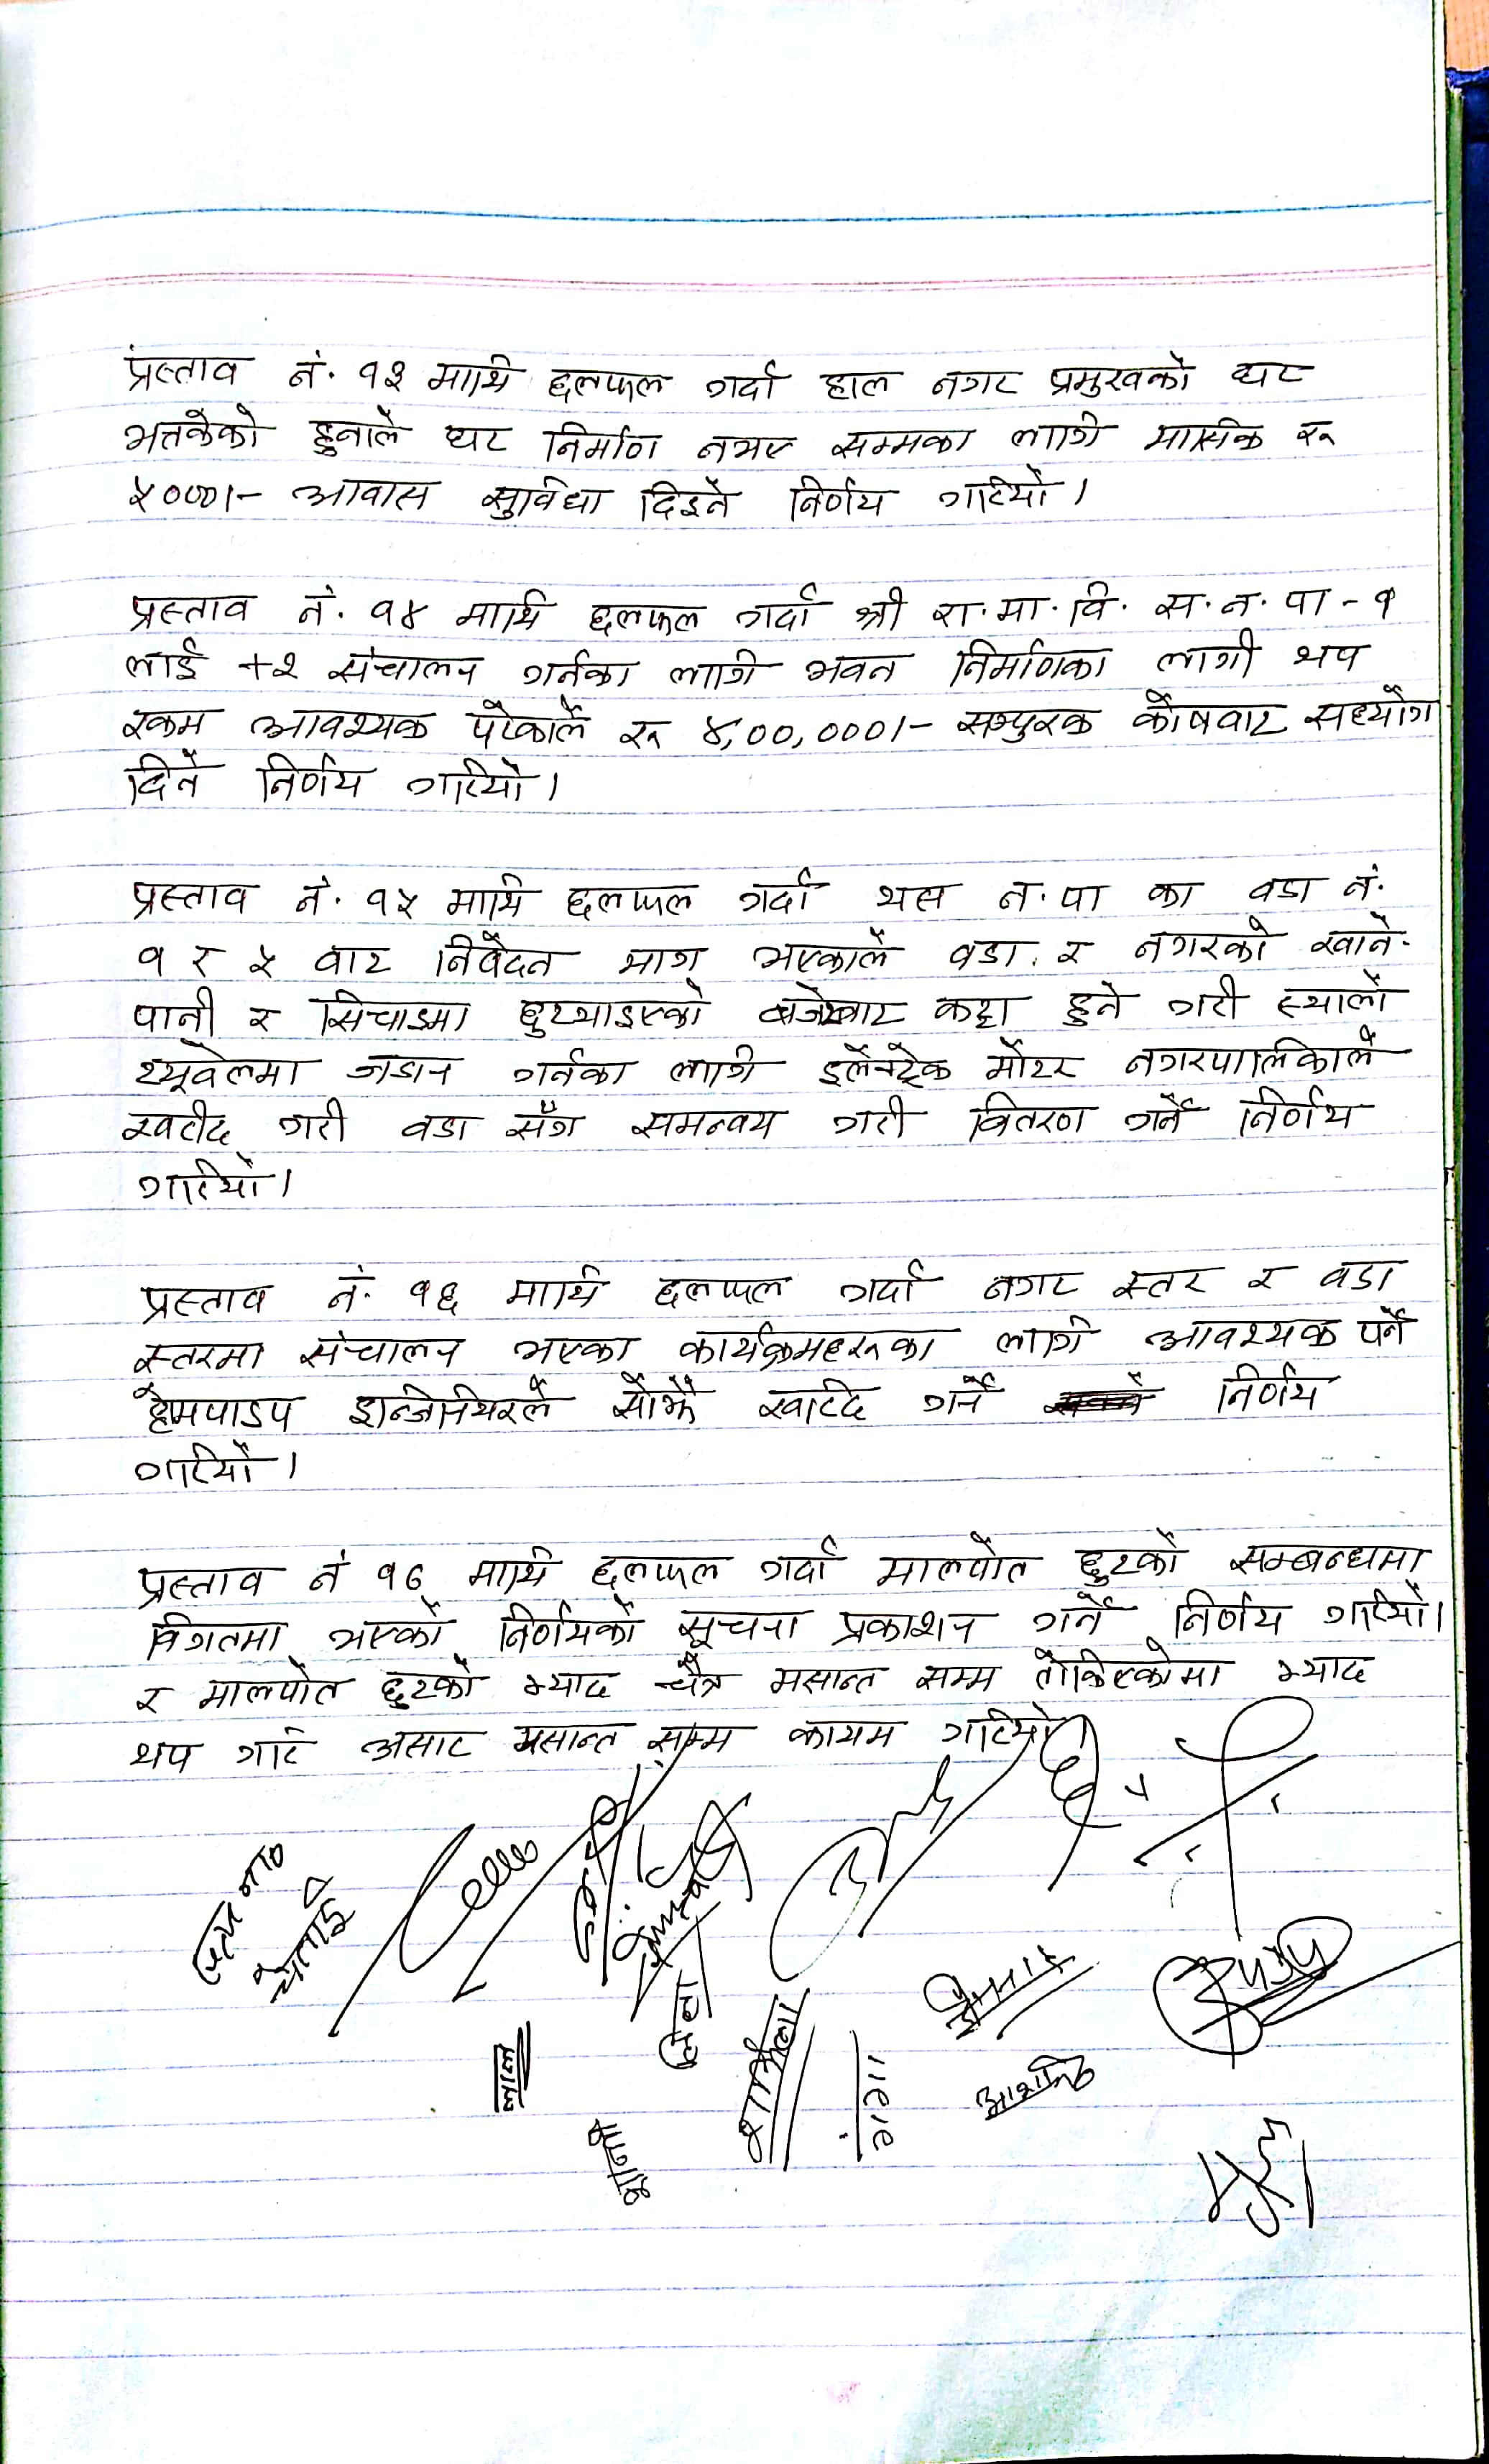 प्रस्ताव नं. १३ माथि छलफल गर्दा हाल नगर प्रमुखको घर
भत्केको हुनाले घर निर्माण नभए सम्मका लागि मासिक रु
५०००।- आवास सुविधा दिइने निर्णय गरियो।
प्रस्ताव नं. १४ माथि छलफल गर्दा श्री रा.मा.वि. स.न.पा-१
लाई +२ संचालन गर्नका लागि भवन निर्माणका लागी थप
रकम आवश्यक परेकाले रु ४,००,०००।- सम्पुरक कोषबाट सहयोग
दिने निर्णय गरियो।
प्रस्ताव नं. १५ माथि छलफल गर्दा यस न.पा का वडा नं.
१ र ५ बाट निवेदन माग भएकाले वडा र नगरको खाने-
पानी र सिंचाइमा छुट्याइएको बजेटबाट कट्टा हुने गरी स्यालो
ट्यूवेलमा जडान गर्नका लागि इलेक्ट्रिक मोटर नगरपालिकाले
खरीद गरी वडा सँग समन्वय गरी वितरण गर्ने निर्णय
गरियो।
प्रस्ताव नं. १६ माथि छलफल गर्दा नगर स्तर र वडा
स्तरमा संचालन भएका कार्यक्रमहरुका लागि आवश्यक पर्ने
ह्यूमपाइप इन्जिनियरले सोझै खरिद गर्ने निर्णय
गरियो।
प्रस्ताव नं १७ माथि छलफल गर्दा मालपोत छुटको सम्बन्धमा
विगतमा भएको निर्णयको सूचना प्रकाशन गर्ने निर्णय गरियो।
र मालपोत छुटको म्याद चैत्र मसान्त सम्म तोकिएकोमा म्याद
थप गरि असार मसान्त सम्म कायम गरियो।
लाल
शर्मिला